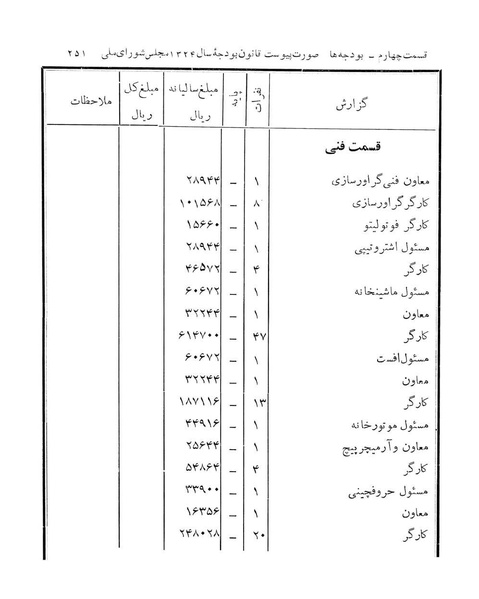 قسمت چهارم – بودجه‌ها صورت پیوست قانون بودجهٔ سال ۱۳۲۴ مجلس شورای ملی ۲۵۱
گزارش نفرات پایه مبلغ سالیانه ریال مبلغ کل ریال ملاحظات
قسمت فنی
معاون فنی گراورسازی ۱ – ۲۸۹۴۴
کارگر گراورسازی ۸ – ۱۰۱۵۶۸
کارگر فوتولیتو ۱ – ۱۵۶۶۰
مسئول اشتروتیپی ۱ – ۲۸۹۴۴
کارگر ۴ – ۴۶۵۷۲
مسئول ماشینخانه ۱ – ۶۰۶۷۲
معاون ۱ – ۳۲۲۴۴
کارگر ۴۷ – ۶۱۴۷۰۰
مسئول افست ۱ – ۶۰۶۷۲
معاون ۱ – ۳۲۲۴۴
کارگر ۱۳ – ۱۸۷۱۱۶
مسئول موتورخانه ۱ – ۴۴۹۱۶
معاون و آرمیچرپیچ ۱ – ۲۵۶۴۴
کارگر ۴ – ۵۴۸۶۴
مسئول حروفچینی ۱ – ۳۳۹۰۰
معاون ۱ – ۱۶۳۵۶
کارگر ۲۰ – ۲۴۸۰۲۸